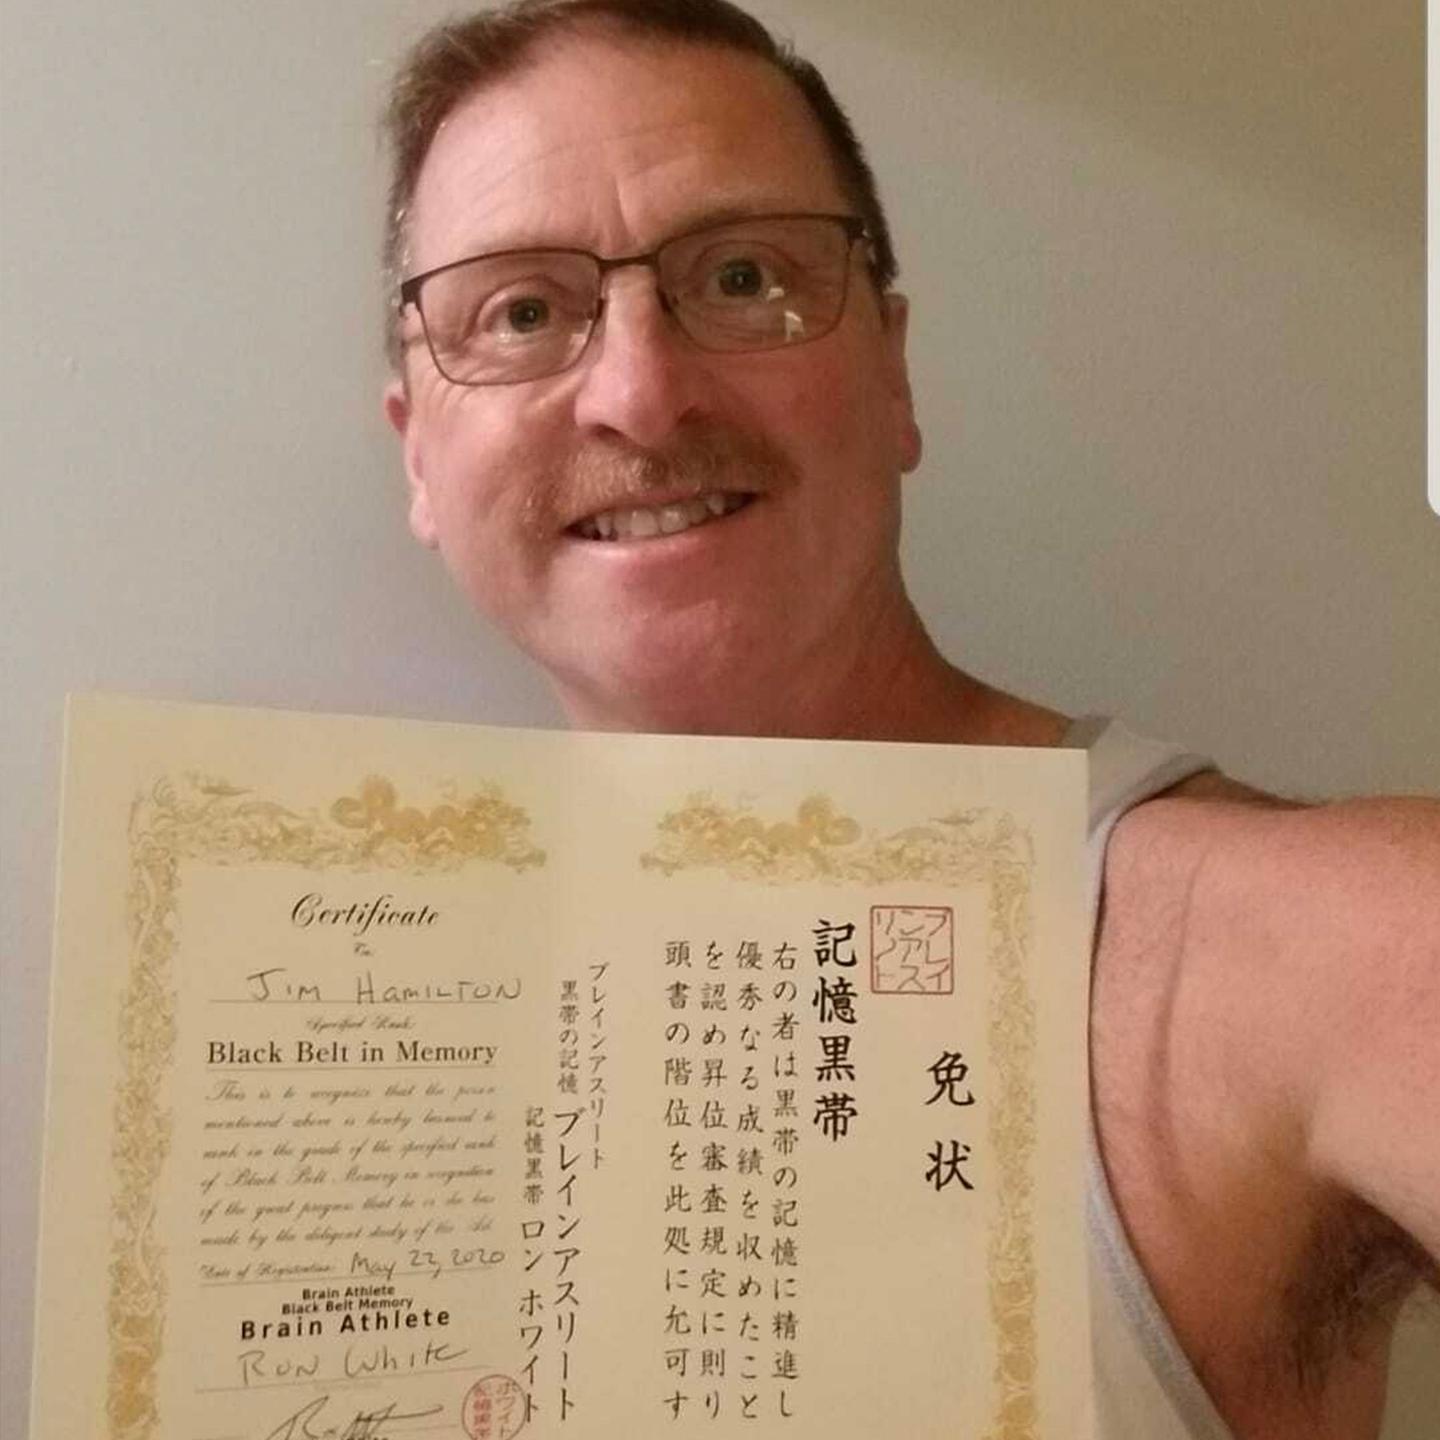 Certificate
To:
JIM HAMILTON
Specified Rank:
Black Belt in Memory
This is to recognize that the person
mentioned above is hereby licensed to
rank in the grade of the specified rank
of Black Belt Memory in recognition
of the great progress that he or she has
made by the diligent study of the Art.
Date of Registration: May 22, 2020
Brain Athlete
Black Belt Memory
Brain Athlete
RON White
ブレイン
ンアス
リート
免状
記憶黒帯
右の者は黒帯の記憶に精進し
優秀なる成績を収めたこと
を認め昇位審査規定に則り
頭書の階位を此処に允可す
ブレインアスリート
黒帯の記憶 ブレインアスリート
記憶黒帯 ロン ホワイト